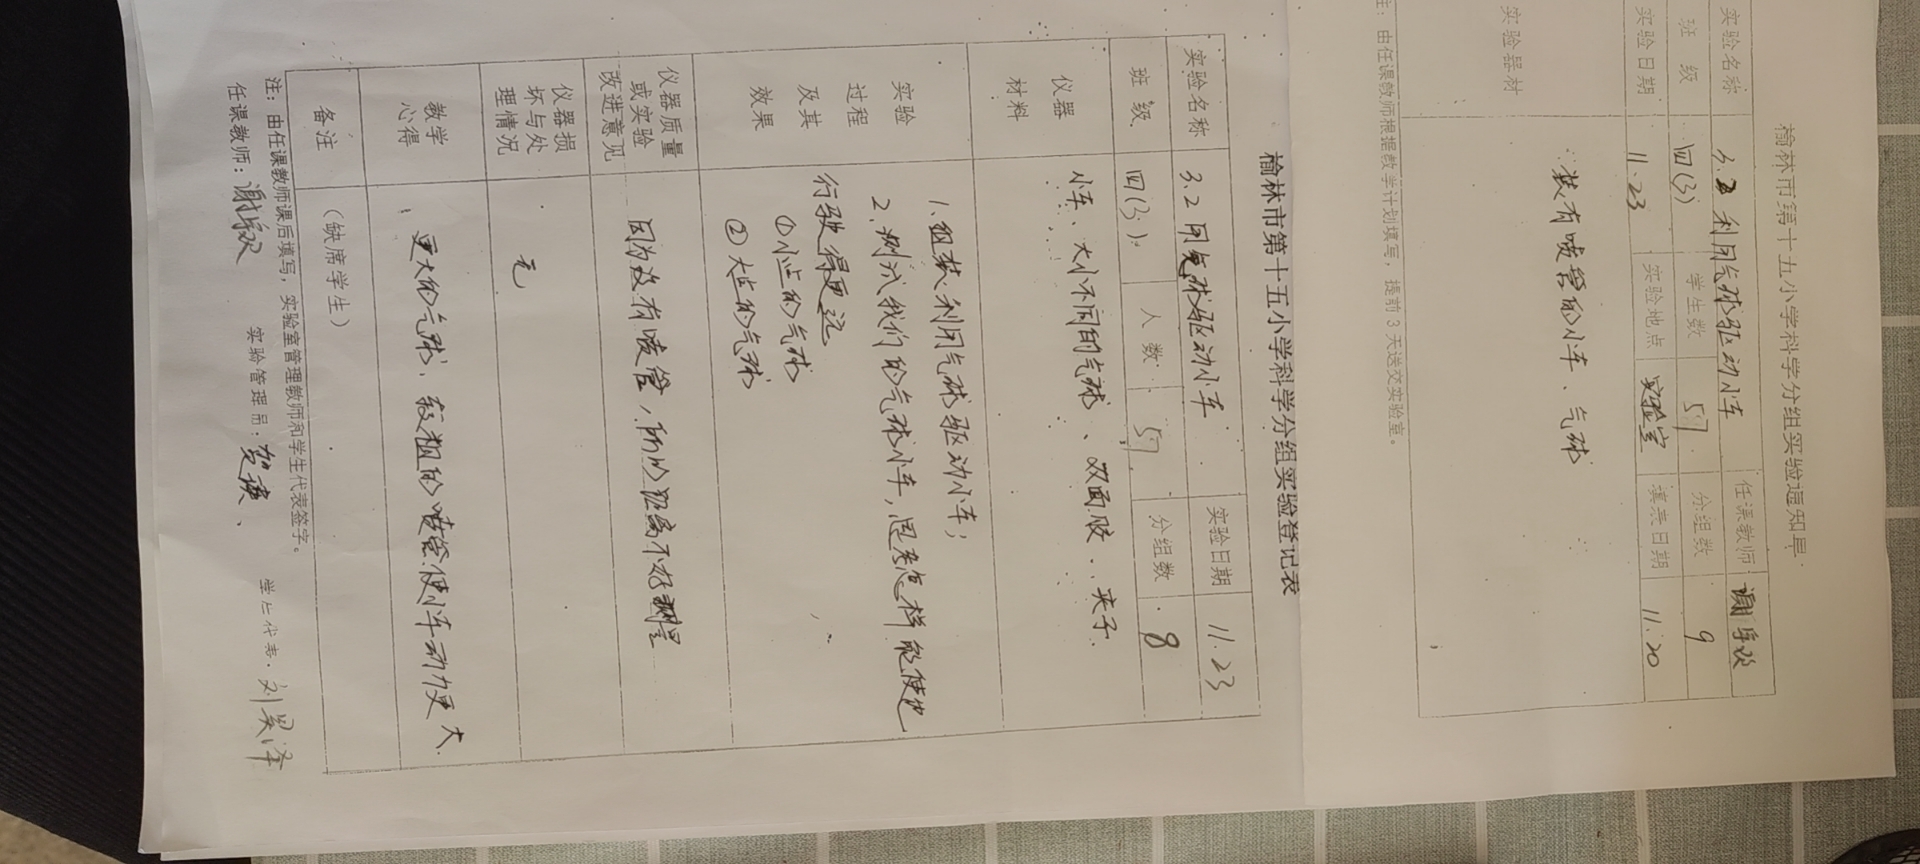 榆林市第十五小学科学分组实验通知单
实验名称 3.2 利用气球驱动小车 任课教师
班级 四(3) 学生数 57 分组数 9
实验日期 11.23 实验地点 实验室 填表日期 11.20
实验器材 装有喷管的小车、气球
注：由任课教师根据教学计划填写，提前3天送交实验室。
榆林市第十五小学科学分组实验登记表
实验名称 3.2 用气球驱动小车 实验日期 11.23
班级 四(3) 人数 57 分组数 8
仪器材料 小车、大小不同的气球、双面胶、夹子
实验过程及其效果
1.组装利用气球驱动小车；
2.测试我们的气球小车，思考怎样能使它
行驶得更远
①小点的气球
②大点的气球
仪器质量或实验改进意见 因为没有喷管，所以距离不好测量
仪器损坏与处理情况 无
教学心得 更大的气球、较粗的喷管使小车动力更大
备注 (缺席学生)
注：由任课教师课后填写，实验室管理教师和学生代表签字。
任课教师： 实验管理员： 学生代表：